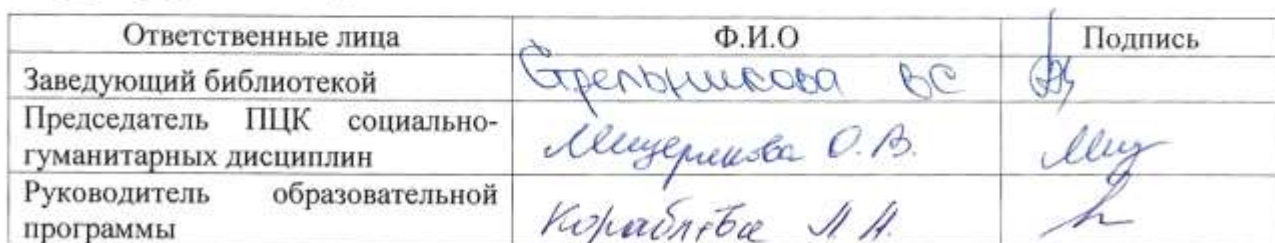 Ответственные лица Ф.И.О Подпись
Заведующий библиотекой Стрельникова ВС
Председатель ПЦК социально-
гуманитарных дисциплин Мищерякова О.В. Мищ
Руководитель образовательной
программы Кораблева